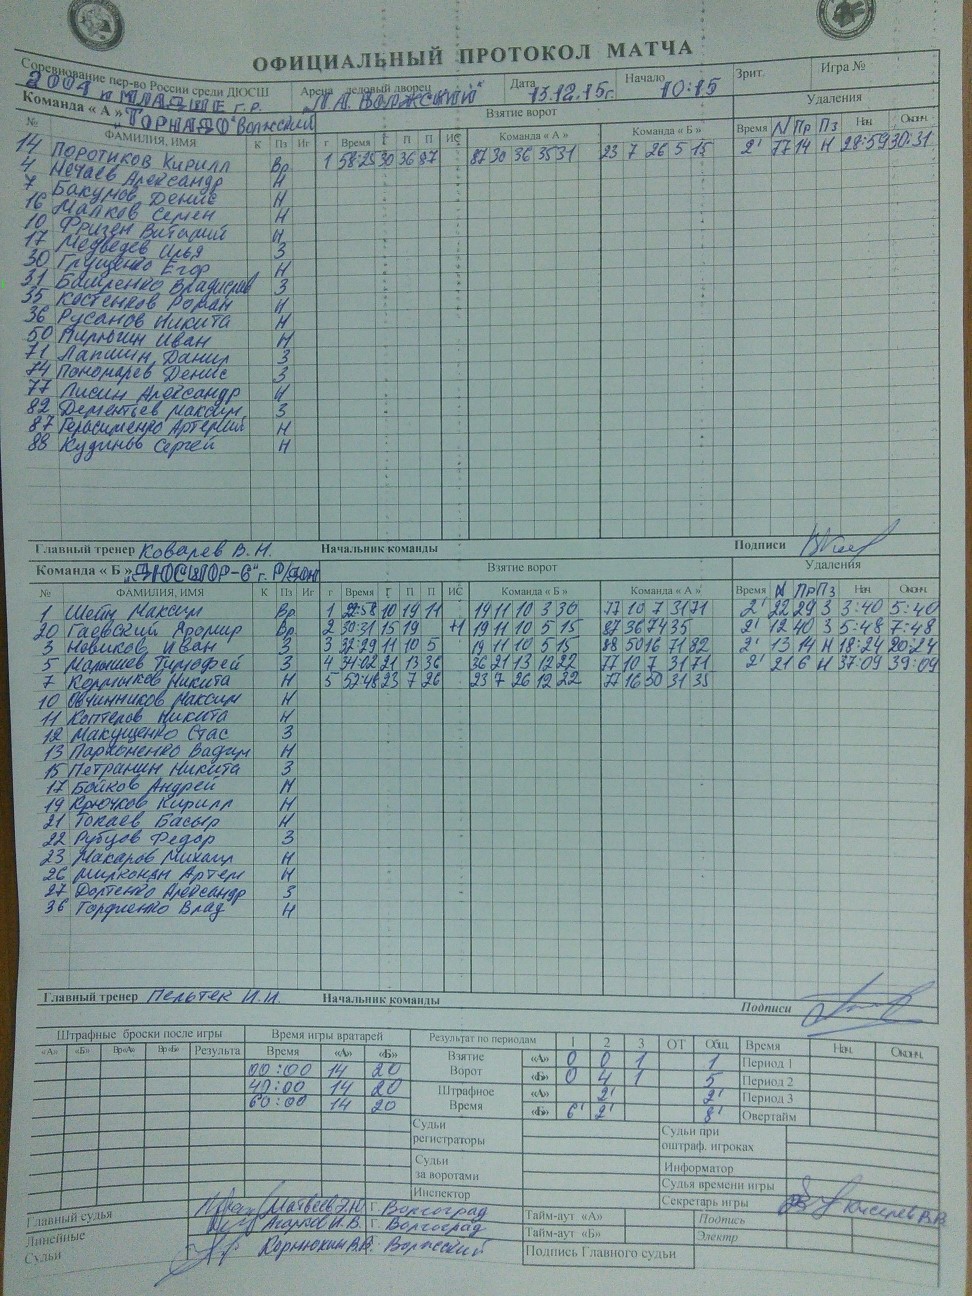 ОФИЦИАЛЬНЫЙ ПРОТОКОЛ МАТЧА
Соревнование пер-во России среди ДЮСШ Арена ледовый дворец Дата Начало Зрит. Игра №
2004 и МЛАДШЕ г.р. Л.А. ВОЛЖСКИЙ" 13.12.15г. 10:15
Команда « А » "ТОРНАДО" Волжский Взятие ворот Удаления
№ ФАМИЛИЯ, ИМЯ К Пз Иг г Время Г П П ИС Команда « А » Команда « Б » Время N Пр Пз Нач. Оконч.
14 Поротиков Кирилл Вр 1 56:25 30 36 87 87 30 36 35 31 23 7 26 5 15 2' 77 14 Н 28:59 30:31
4 Нечаев Александр Н
7 Бакумов Денис Н
16 Малков Семен Н
10 Фризен Виталий Н
17 Медведев Илья З
30 Грущенко Егор Н
31 Владислав З
35 Костенков Роман Н
36 Русанов Никита Н
50 Кирюгин Иван Н
71 Лапшин Данил З
74 Пономарев Денис З
77 Лисин Александр Н
82 Дементьев Максим З
87 Герасименко Артемий Н
88 Кудинов Сергей Н
Главный тренер Ковалев В.Н. Начальник команды Подписи
Команда « Б » "ДЮСШОР-6" г. Р/Дон Взятие ворот Удаления
№ ФАМИЛИЯ, ИМЯ К Пз Иг г Время Г П П ИС Команда « Б » Команда « А » Время N Пр Пз Нач. Оконч.
1 Максим Вр 1 22:58 10 19 11 19 11 10 3 36 77 10 7 31 71 2' 22 29 З 3:40 5:40
20 Гаевский Яромир Вр 2 30:31 15 19 +1 19 11 10 5 15 87 36 74 35 2' 12 40 З 5:48 7:48
3 Новиков Иван З 3 32:29 11 10 5 19 11 10 5 15 88 50 16 71 82 2' 13 14 Н 18:24 20:24
5 Малышев Тимофей З 4 34:02 21 13 36 36 21 13 12 22 77 10 7 31 71 2' 21 6 Н 37:09 39:09
7 Никита Н 5 57:48 23 7 26 23 7 26 12 22 77 16 30 31 35
10 Овчинников Максим Н
11 Коптелов Никита Н
12 Макущенко Стас З
13 Пархоменко Вадим Н
15 Петранин Никита З
17 Бойков Андрей Н
19 Крючков Кирилл Н
21 Токаев Басыр Н
22 Рубцов Федор З
23 Макаров Михаил Н
26 Мирконян Артем Н
27 Долтенко Александр З
36 Гордиенко Влад Н
Главный тренер Пельтек И.И. Начальник команды Подписи
Штрафные броски после игры Время игры вратарей Результат по периодам 1 2 3 ОТ Общ. Время Нач. Оконч.
«А» «Б» Вр«А» Вр«Б» Результа Время «А» «Б» Взятие Ворот «А» 0 0 1 1 Период 1
00:00 14 20 «Б» 0 4 1 5 Период 2
40:00 14 20 Штрафное Время «А» 2' 2' Период 3
60:00 14 20 «Б» 6' 2' 8' Овертайм
Судьи регистраторы Судьи при оштраф. игроках
Судьи за воротами Информатор
Судья времени игры
Инспектор Секретарь игры Киселев В.В.
Главный судья Матвеев Э.Ю. г. Волгоград Тайм-аут «А» Подпись
Линейные И.В. г. Волгоград Тайм-аут «Б» Электр
Судьи Корнюхин В.В. Волжский Подпись Главного судьи